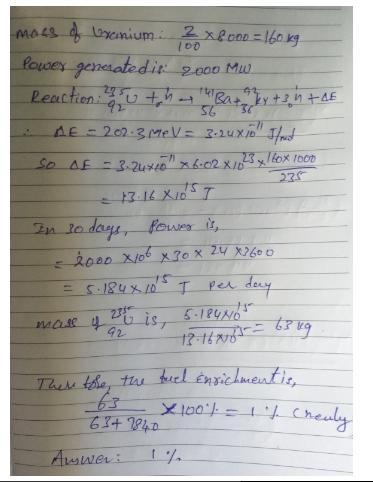 mass of Uranium: 2/100 × 8000 = 160 kg
Power generated is 2000 MW
Reaction: ²³⁵₉₂U + ₀n → ¹⁴¹₅₆Ba + ⁹²₃₆Kr + 3₀n + ΔE
∴ ΔE = 202.3 MeV = 3.24×10⁻¹¹ J/
So ΔE = 3.24×10⁻¹¹ × 6.02 × 10²³ × 160×1000/235
= 13.16 × 10¹⁵ J
In 30 days, Power is,
= 2000 × 10⁶ × 30 × 24 × 3600
= 5.184 × 10¹⁵ J Per day
mass of ²³⁵₉₂U is, 5.184×10¹⁵/13.16×10¹⁵ = 63 kg
Therefore, the fuel enrichment is,
63/63+7840 × 100% = 1% (nearly
Answer: 1%